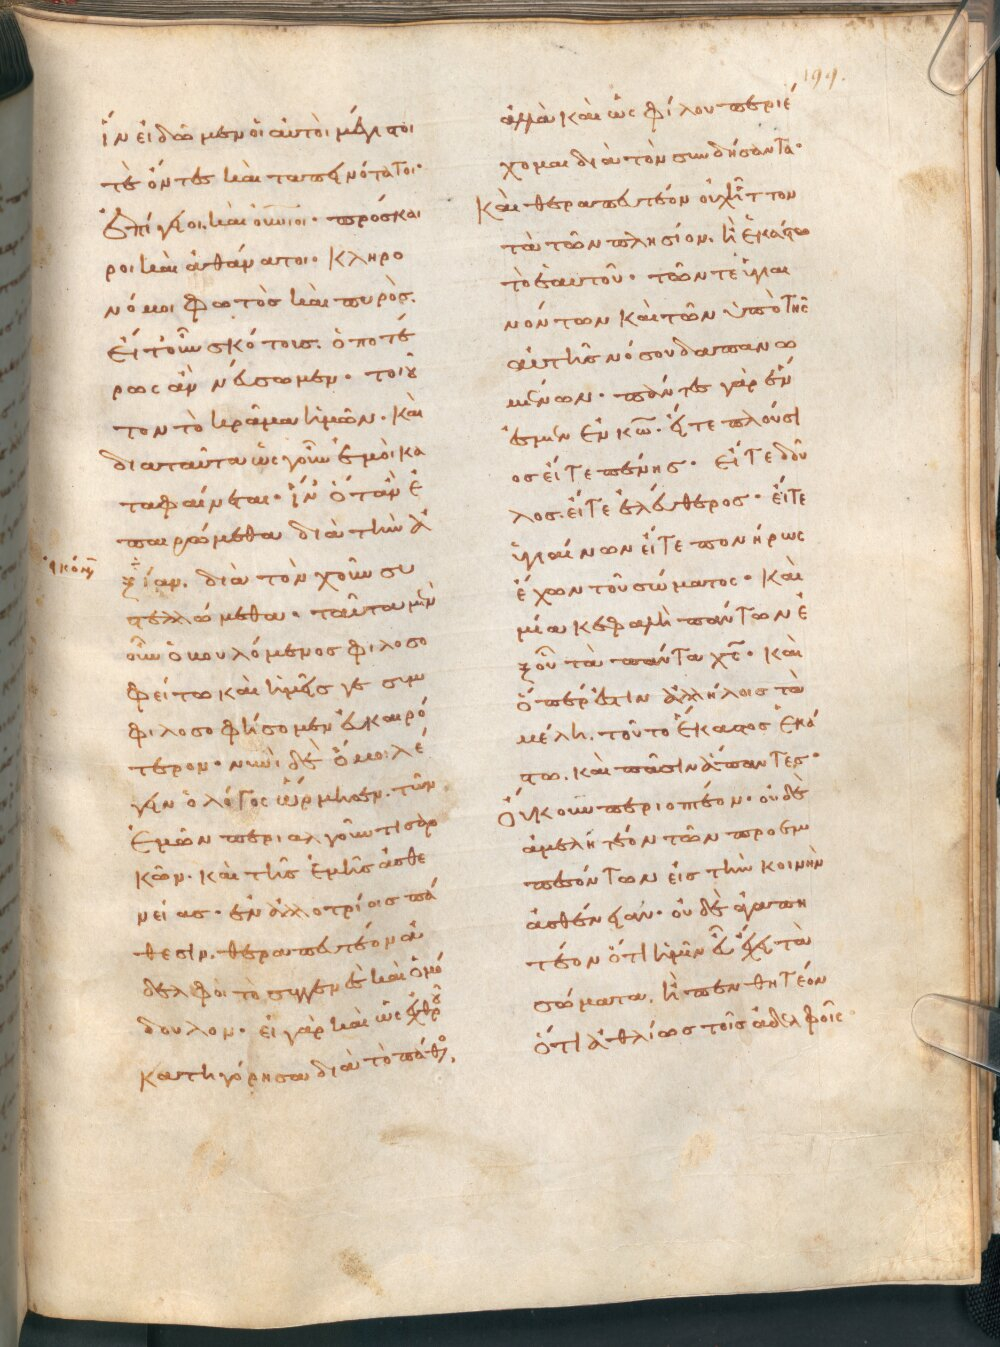 199.
ἵν εἰδῶμεν οἱ αὐτοὶ μέγιστοι
τὲ ὄντες καὶ ταπεινότατοι·
ἐπίγειοι καὶ οὐνιοι· πρόσκαι
ροι καὶ ἀθάνατοι· κληρο
νόμοι φωτὸς καὶ πυρὸς.
εἴτοῦν σκότους. ὁποτέ
ρως ἂν νεύσωμεν· τοιοῦ
τον τὸ κρᾶμα ἡμῶν. καὶ
διαταῦτα ὡς γοῦν ἐμοὶ κα
ταφαίνεται· ἵν ὁτὰν ἐ
παιρώμεθα διὰ τὴν
εἰκόνα
ξίαν. διὰ τὸν χοῦν συ
στελλώμεθα· ταῦτα μὲν
οὖν ὁ βουλόμενος φιλοσο
φείτω καὶ ἡμεῖς γε συμ
φιλοσοφήσομεν εὐκαιρό
τερον· νυνὶ δὲ ὅ μοι λέ
γειν ὁ λόγος ὥρμησεν. τῶν
ἐμῶν περιαλγοῦντι σαρ
κῶν. καὶ τῆς ἐμῆς ἀσθε
νείας· ἐν ἀλλοτρίοις πά
θεσιν. θεραπευτέον ἀ
δελφοὶ τὸ συγγενὲς καὶ ὁμό
δουλον. εἰ γὰρ καὶ ὡς ἐχθροῦ
κατηγόρησα διὰ τὸ πάθος,
ἀλλὰ καὶ ὡς φίλου περιέ
χομαι διὰ τὸν συνδήσαντα·
Καὶ θεραπευτέον οὐχ ἧττον
τὰ τῶν πλησίον. ἢ ἑκάστω
τὸ ἑαυτοῦ· τῶν τε ὑγιαι
νόντων καὶ τῶν ὑπὸ τῆς
αὐτῆς νόσου δαπανω
μένων· πάντες γὰρ ἕν
ἐσμεν ἐν κω. εἴτε πλούσι
ος εἴτε πένης· εἴτε δοῦ
λος. εἴτε ἐλεύθερος· εἴτε
ὑγιαίνων εἴτε πονήρως
ἔχων τοῦ σώματος· καὶ
μία κεφαλὴ πάντων ἐ
ξοῦ τὰ πάντα χς· καὶ
ὅπερ ἐστὶν ἀλλήλοις τὰ
μέλη. τοῦτο ἕκαστος ἑκά
στω. καὶ πᾶσιν ἅπαντες·
Οὔκουν περιοπτέον· οὐδὲ
ἀμελητέον τῶν προεμ
πεσόντων εἰς τὴν κοινὴν
ἀσθένειαν· οὐδὲ ἀγαπη
τέον ὅτι ἡμῖν εὖ ἔχει τὰ
σώματα. ἢ πενθητέον
ὅτι ἀθλίως τοῖς ἀδελφοῖς·